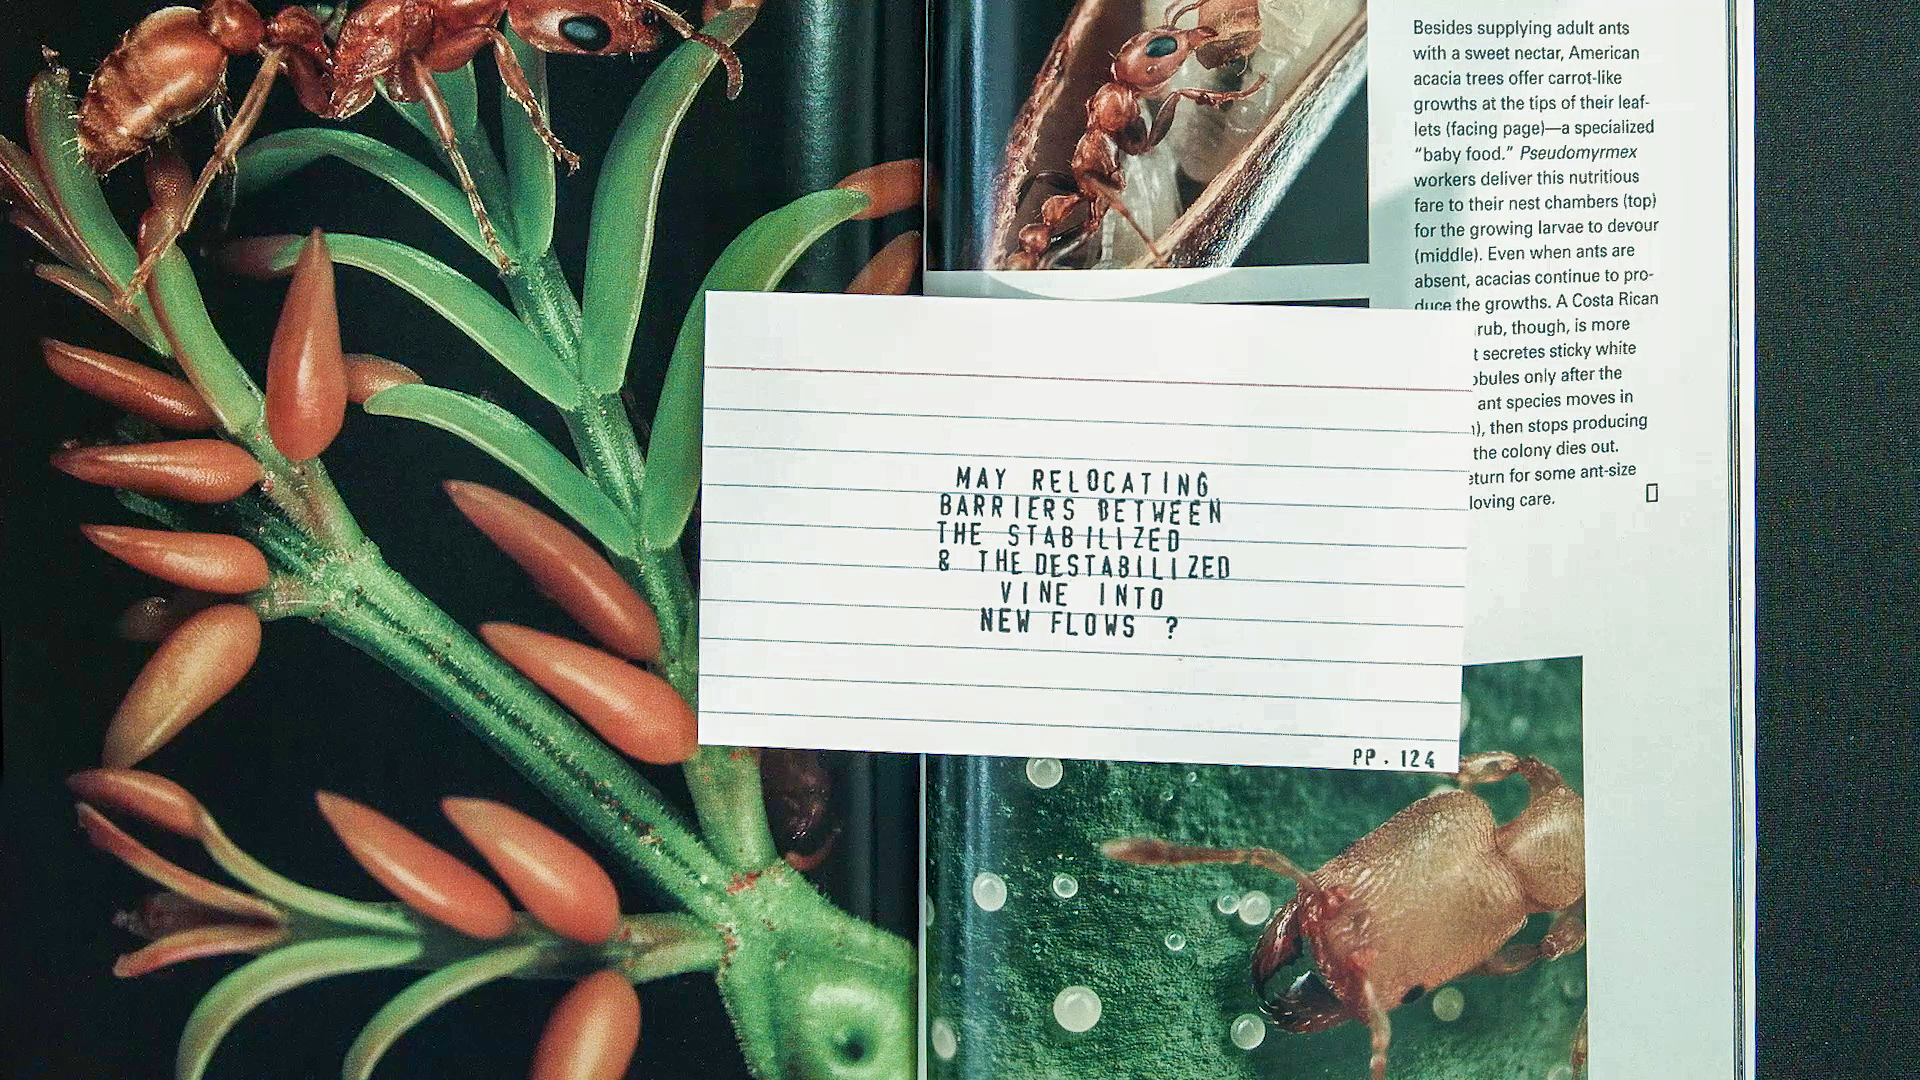 Besides supplying adult ants
with a sweet nectar, American
acacia trees offer carrot-like
growths at the tips of their leaf-
lets (facing page)—a specialized
“baby food.” Pseudomyrmex
workers deliver this nutritious
fare to their nest chambers (top)
for the growing larvae to devour
(middle). Even when ants are
absent, acacias continue to pro-
duce the growths. A Costa Rican
though, is more
secretes sticky white
only after the
ant species moves in
then stops producing
the colony dies out.
for some ant-size
loving care.
MAY RELOCATING
BARRIERS BETWEEN
THE STABILIZED
& THE DESTABILIZED
VINE INTO
NEW FLOWS ?
PP. 124